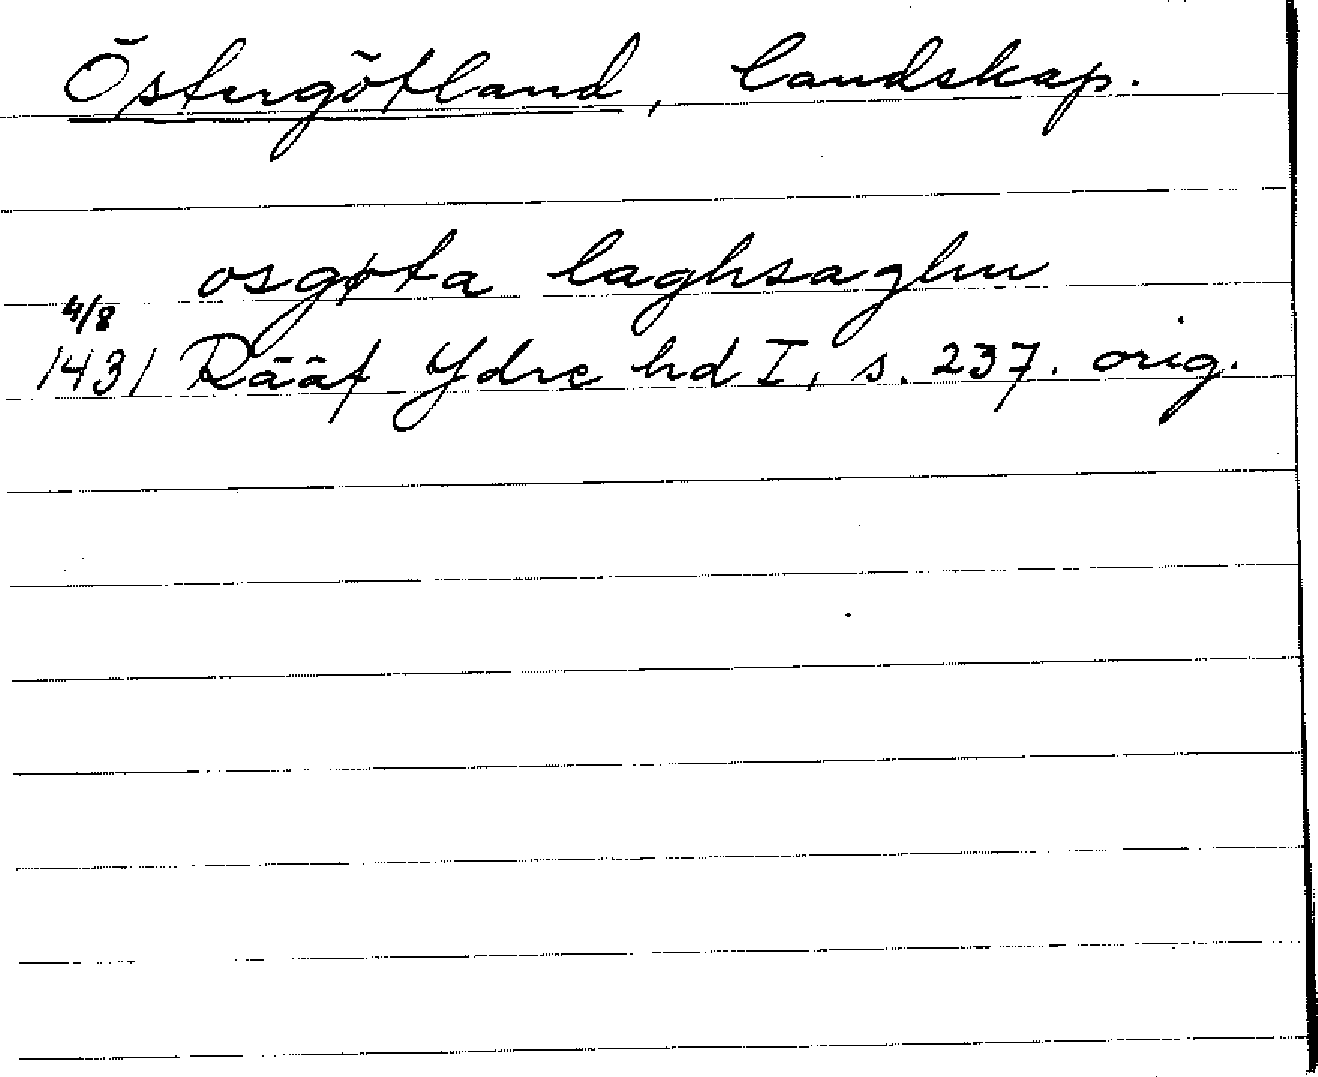 Östergötland, landskap.
osgøta laghsaghu
4/8
1431 Rääf Ydre hd I, s. 237. orig.